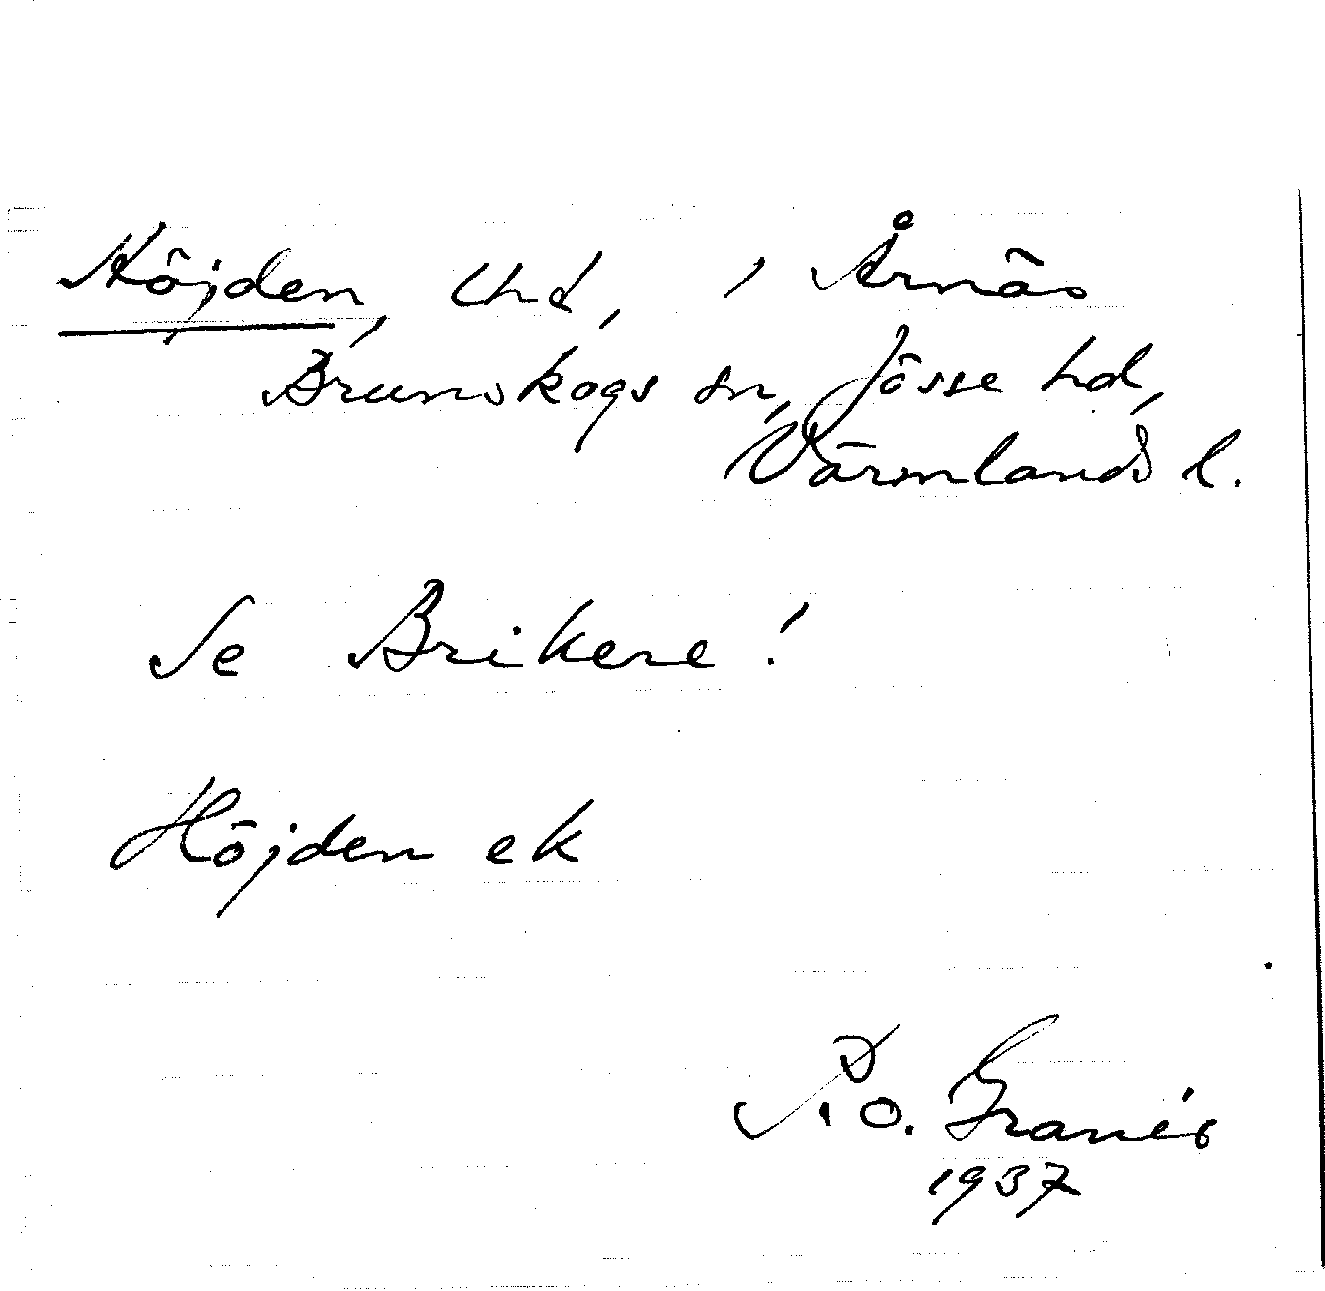 Höjden, lhd, i Årnäs
Brunskogs sn, Jösse hd,
Värmlands l.
Se Brikere!
Höjden ek
P.O. Granér
1937